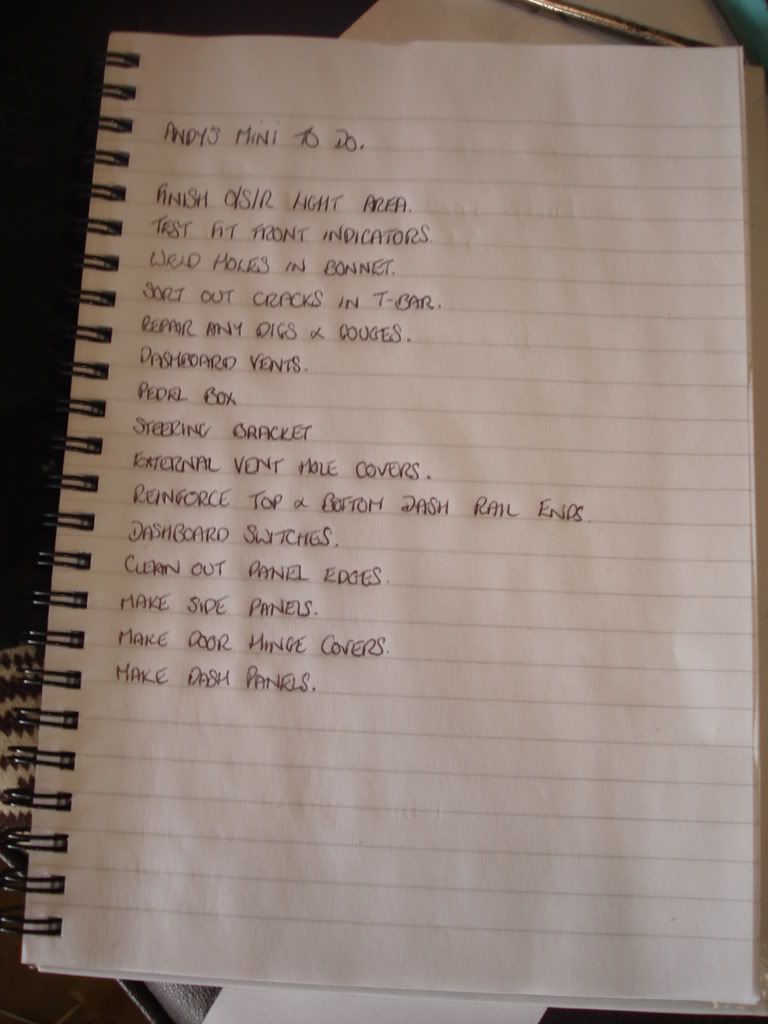 ANDY'S MINI TO DO.
FINISH O/S/R LIGHT AREA.
TEST FIT FRONT INDICATORS.
WELD HOLES IN BONNET.
SORT OUT CRACKS IN T-BAR.
REPAIR ANY DIGS & GOUGES.
DASHBOARD VENTS.
PEDEL BOX
STEERING BRACKET
EXTERNAL VENT HOLE COVERS.
REINFORCE TOP & BOTTOM DASH RAIL ENDS.
DASHBOARD SWITCHES.
CLEAN OUT PANEL EDGES.
MAKE SIDE PANELS.
MAKE DOOR HINGE COVERS.
MAKE DASH PANELS.